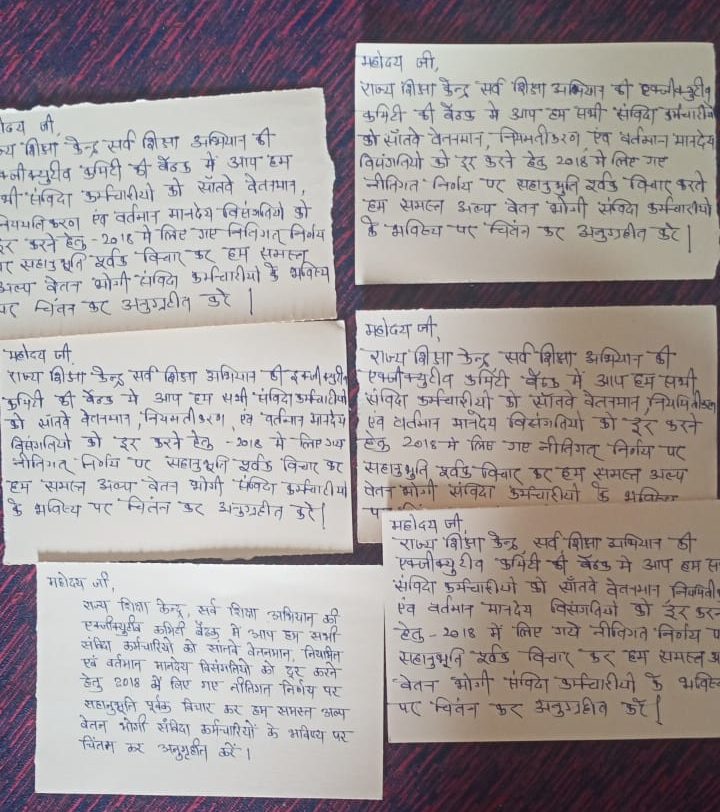 महोदय जी,
राज्य शिक्षा केन्द्र सर्व शिक्षा अभियान की एक्जीक्युटीव
कमिटी की बैठक मे आप हम सभी संविदा कर्मचारीयो
को साँतवे वेतनमान, नियमतीकरण, एंव वर्तमान मानदेय
विसंगतियो को दूर करने हेतु 2018 मे लिए गए
नीतिगत निर्णय पर सहानुभुति पूर्वक विचार करते
हम समस्त अल्प वेतन भोगी संविदा कर्मचारीयो
के भविष्य पर चिंतन कर अनुग्रहीत करे |
जी,
शिक्षा केन्द्र सर्व शिक्षा अभियान की
कमिटी की बैठक मे आप हम
संविदा कर्मचारीयो को साँतवे वेतनमान,
एंव वर्तमान मानदेय विसंगतियो को
करने हेतु - 2018 मे लिए गए नितिगत निर्णय
सहानुभुति पूर्वक विचार कर हम समस्त
अल्प वेतन भोगी संविदा कर्मचारीयो के भविष्य
पर चिंतन कर अनुग्रहीत करे |
महोदय जी,
राज्य शिक्षा केन्द्र सर्व शिक्षा अभियान की
कमिटी की बैठक मे आप हम सभी संविदा कर्मचारीयो
को साँतवे वेतनमान, नियमतीकरण, एंव वर्तमान मानदेय
विसंगतियो को दूर करने हेतु - 2018 मे लिए गय
नीतिगत् निर्णय पर सहानुभुति पूर्वक विचार कर
हम समस्त अल्प वेतन भोगी संविदा कर्मचारीयो
के भविष्य पर चितंन कर अनुग्रहीत करे |
महोदय जी,
राज्य शिक्षा केन्द्र सर्व शिक्षा अभियान की
एक्जीक्युटीव कमिटी बैठक में आप हम सभी
संविदा कर्मचारीयो को साँतवे वेतनमान,
एंव वर्तमान मानदेय विसंगतियो को दूर करने
हेतु 2018 मे लिए गए नीतिगत् निर्णय पर
सहानुभुति पूर्वक विचार कर हम समस्त अल्प
वेतन भोगी संविदा कर्मचारीयो के भविष्य
महोदय जी,
राज्य शिक्षा केन्द्र सर्व शिक्षा अभियान की
एक्जीक्युटीव कमिटी की बैठक मे आप हम
संविदा कर्मचारीयो को साँतवे वेतनमान
एंव वर्तमान मानदेय विसंगतियो को दूर
हेतु - 2018 में लिए गये नीतिगत निर्णय
सहानुभुति पूर्वक विचार कर हम समस्त
वेतन भोगी संविदा कर्मचारीयो के
पर चितंन कर अनुग्रहीत करें |
महोदय जी,
राज्य शिक्षा केन्द्र, सर्व शिक्षा अभियान की
एक्जीक्युटीव कमिटी बैठक में आप हम सभी
संविदा कर्मचारियो को सातवे वेतनमान, नियमित
एवं वर्तमान मानदेय विसंगतियों को दूर करने
हेतु 2018 में लिए गए नीतिगत निर्णय पर
सहानुभुति पूर्वक विचार कर हम समस्त अल्प
वेतन भोगी संविदा कर्मचारियों के भविष्य पर
चिंतन कर अनुग्रहीत करें।